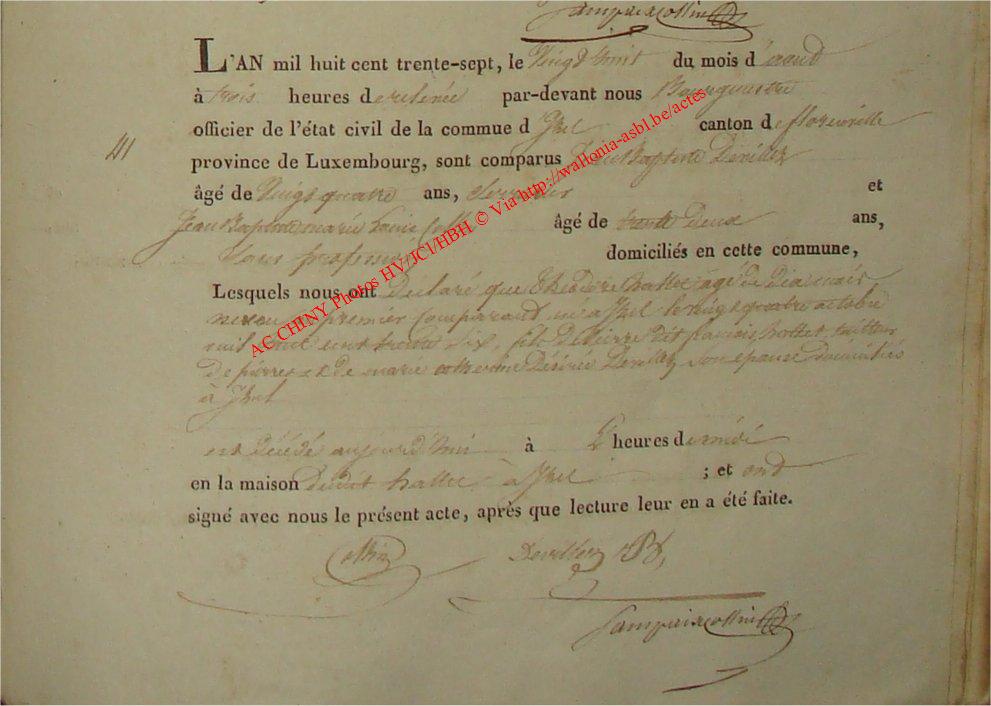 L'AN mil huit cent trente-sept, le Vingt huit du mois d'aoud
à trois heures de relevée par-devant nous Bourgmestre
officier de l'état civil de la commune d'Izel canton de florenville
41
province de Luxembourg, sont comparus Jean Baptiste Devillez
âgé de Vingt quatre ans, et
Jean Baptiste marie Louis Collin âgé de trente Deux ans,
Sans profession domiciliés en cette commune,
Lesquels nous ont Declaré que Théodore hattet agé de Dix mois
neveu premier comparant né à Izel le vingt quatre octobre
mil huit cent trente six, fils de Pierre dit francois hattet
De pierres et de marie catherine Désirée Devillez son epouse Domiciliés
à Izel
est décédé aujourd'hui à heures de midi
en la maison dudit hattet à Izel ; et ont
signé avec nous le présent acte, après que lecture leur en a été faite.
Collin Devillez JB,
AC CHINY Photos HV/JCI/HBH © Via http://wallonia-asbl.be/actes